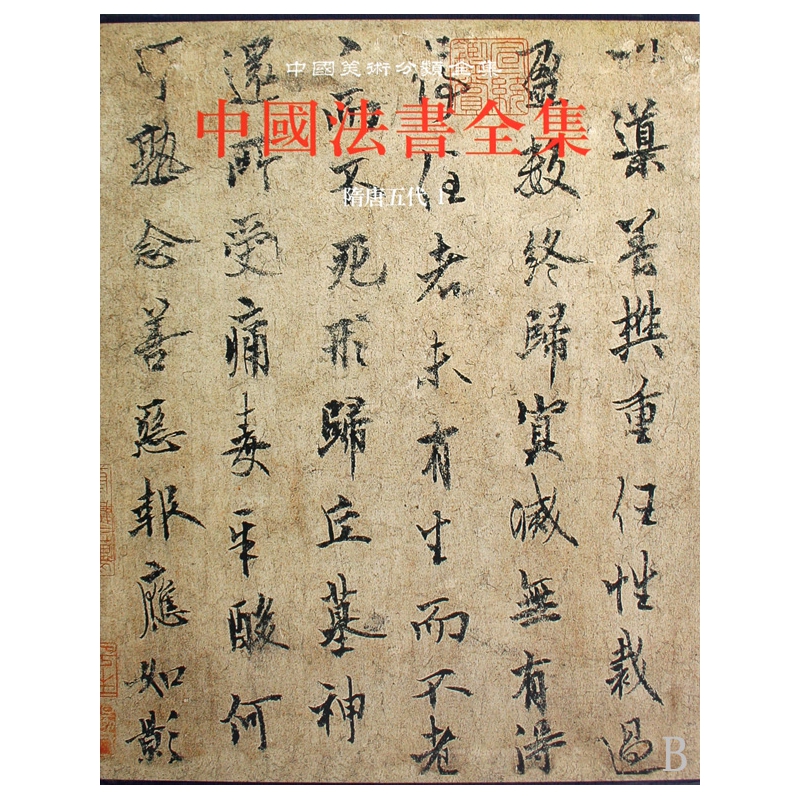 中國美術分類全集
中國法書全集
隋唐五代 1
以導養樊重任性裁過
盈數終歸冥滅無有得
停住者未有生而不老
老而不死形歸丘墓神
還所受痛毒辛酸何
可熟念善惡報應如影
B